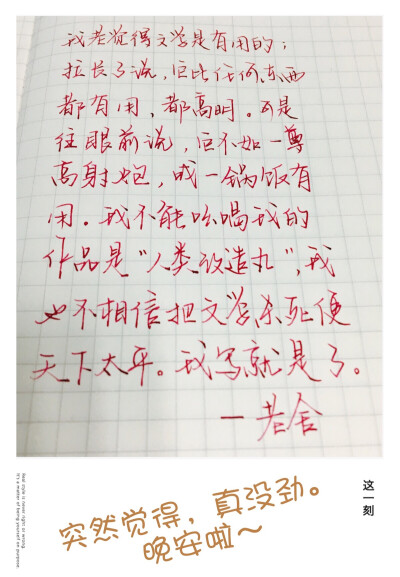 我老觉得文学是有用的；
拉长了说，它比任何东西
都有用，都高明。可是
往眼前说，它不如一尊
高射炮，或一锅饭有
用。我不能吆喝我的
作品是“人类改造丸”，我
也不相信把文学杀死便
天下太平。我写就是了。
—老舍
Real style is never right or wrong.
It's a matter of being yourself on purpose.
这一刻
突然觉得，真没劲。
晚安啦～